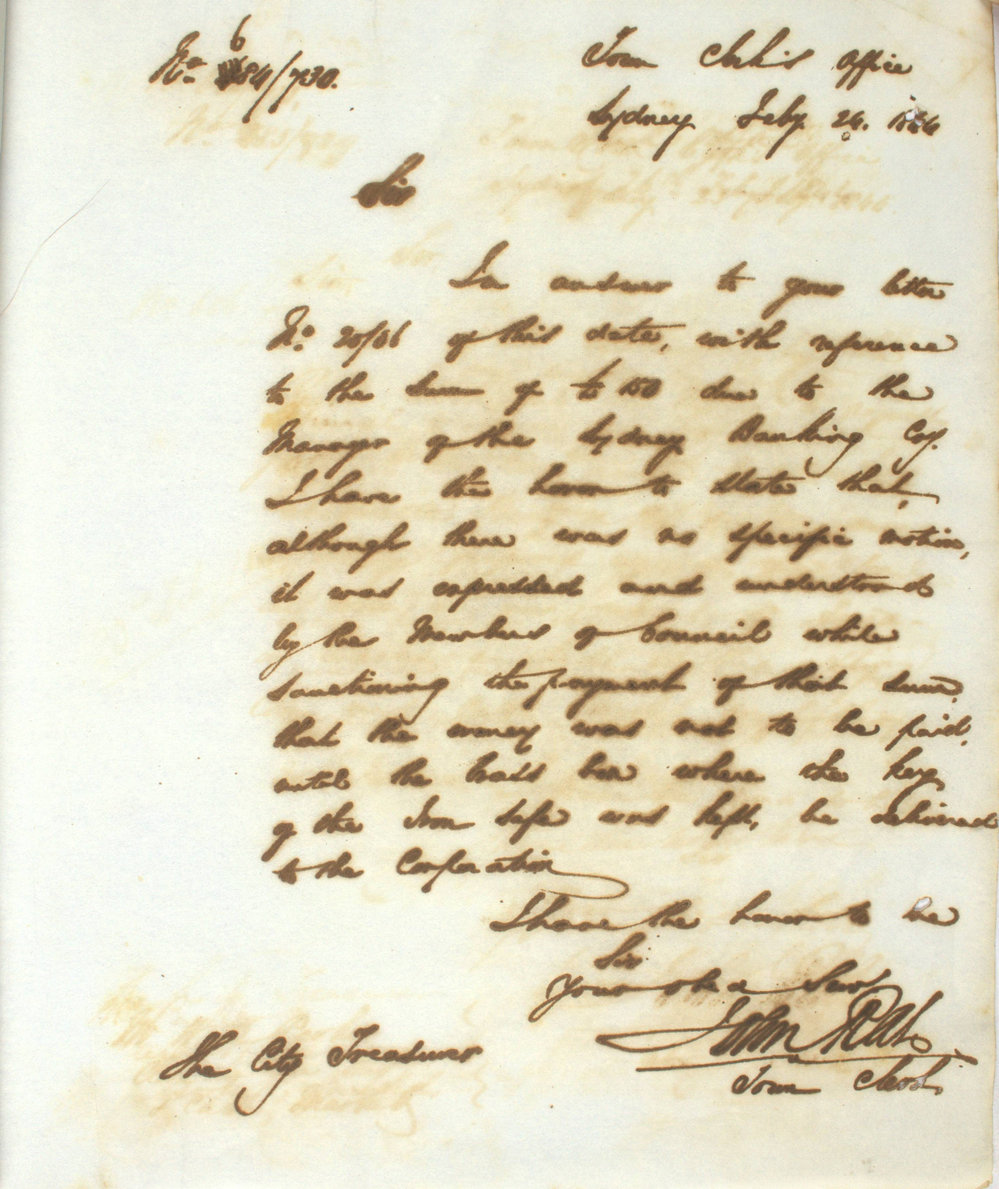 No 684/730.
Town Clerk's Office
Sydney Feby 26. 1866
Sir
In answer to your letter
No. 20/66 of this date, with reference
to the Sum of £150 due to the
Manager of the Sydney Banking Coy.
I have the honor to state that,
although there was no specific motion,
it was expressed and understood
by the Members of Council while
sanctioning the payment of that sum,
that the money was not to be paid,
until the box where the key
of the Iron safe was left, be delivered
to the Corporation
I have the honor to be
Sir
Your obed Servt
John
Town Clerk
The City Treasurer